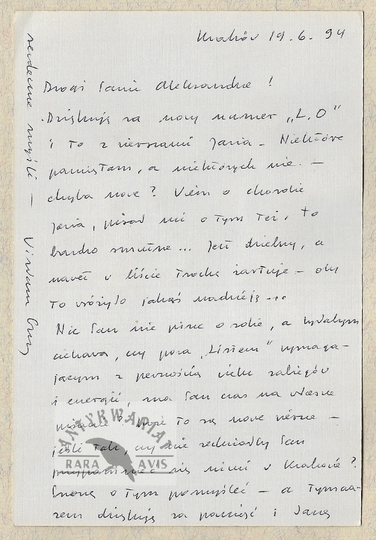 Kraków 19.6.94
Drogi Panie Aleksandrze!
Dziękuję za nowy numer „L.O"
i to z wierszami Jana. Niektóre
pamiętam, a niektórych nie. —
chyba nowe? Wiem o chorobie
Jana, pisał mi o tym też, to
bardzo smutne... Jest dzielny, a
nawet w liście trochę żartuje — oby
to wróżyło jakąś nadzieję...
Nic Pan nie pisze o sobie, a byłabym
ciekawa, czy poza „Listem" wymaga-
jącym z pewnością wielu zabiegów
i energii, ma Pan czas na własne
to są nowe wiersze —
jeśli tak, czy nie zechciałby Pan
się nimi w Krakowie?
Proszę o tym pomyśleć — a tymcza-
sem dziękuję za pamięć i
serdeczne myśli —
ANTYKWARIAT
RARA AVIS